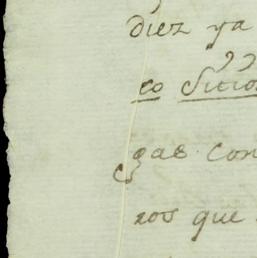 diez ya
co Sitios
gas con
ros que